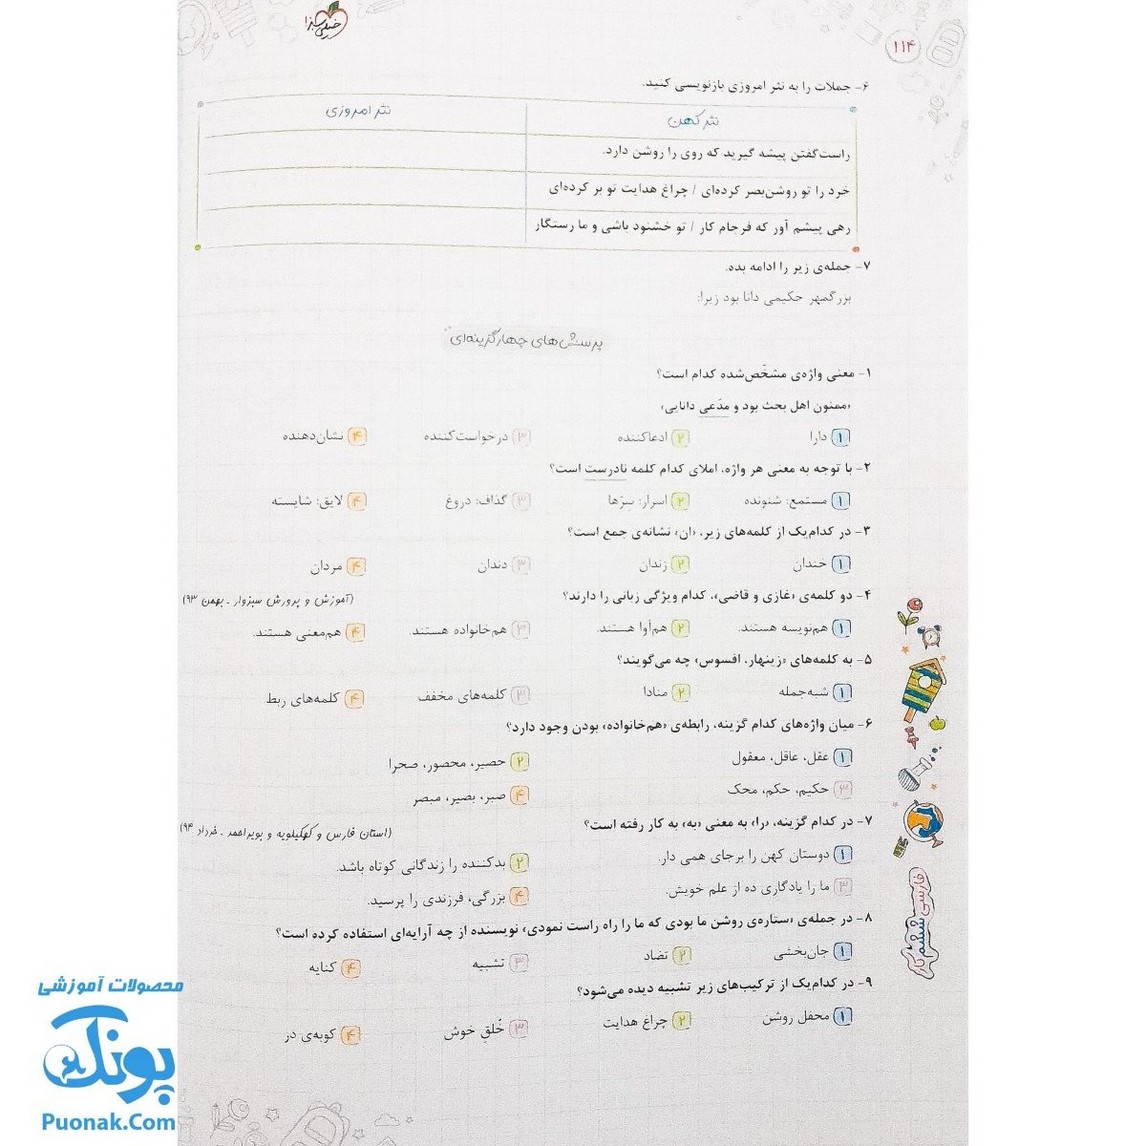 خیلی سبز
۱۱۴
۶- جملات را به نثر امروزی بازنویسی کنید.
نثر کهن
نثر امروزی
راست‌گفتن پیشه گیرید که روی را روشن دارد.
خرد را تو روشن‌بصر کرده‌ای / چراغ هدایت تو بر کرده‌ای
رهی پیشم آور که فرجام کار / تو خشنود باشی و ما رستگار
۷- جمله‌ی زیر را ادامه بده.
بزرگمهر حکیمی دانا بود زیرا:
پرسش‌های چهارگزینه‌ای
۱- معنی واژه‌ی مشخّص‌شده کدام است؟
«ممنون اهل بحث بود و مدّعی دانایی»
۱ دارا ۲ ادعاکننده ۳ درخواست‌کننده ۴ نشان‌دهنده
۲- با توجه به معنی هر واژه، املای کدام کلمه نادرست است؟
۱ مستمع: شنونده ۲ اسرار: سرّها ۳ گذاف: دروغ ۴ لایق: شایسته
۳- در کدام‌یک از کلمه‌های زیر، «ان» نشانه‌ی جمع است؟
۱ خندان ۲ زندان ۳ دندان ۴ مردان
۴- دو کلمه‌ی «غازی و قاضی»، کدام ویژگی زبانی را دارند؟ (آموزش و پرورش سبزوار ـ بهمن ۹۳)
۱ هم‌نویسه هستند. ۲ هم‌آوا هستند. ۳ هم‌خانواده هستند. ۴ هم‌معنی هستند.
۵- به کلمه‌های «زینهار، افسوس» چه می‌گویند؟
۱ شبه‌جمله ۲ منادا ۳ کلمه‌های مخفف ۴ کلمه‌های ربط
۶- میان واژه‌های کدام گزینه، رابطه‌ی «هم‌خانواده» بودن وجود دارد؟
۱ عقل، عاقل، معقول ۲ حصیر، محصور، صحرا
۳ حکیم، حکم، محک ۴ صبر، بصیر، مبصر
۷- در کدام گزینه، «را» به معنی «به» به کار رفته است؟ (استان فارس و کهکیلویه و بویراحمد ـ خرداد ۹۴)
۱ دوستان کهن را برجای همی دار. ۲ بدکننده را زندگانی کوتاه باشد.
۳ ما را یادگاری ده از علم خویش. ۴ بزرگی، فرزندی را پرسید.
۸- در جمله‌ی «ستاره‌ی روشن ما بودی که ما را راه راست نمودی» نویسنده از چه آرایه‌ای استفاده کرده است؟
۱ جان‌بخشی ۲ تضاد ۳ تشبیه ۴ کنایه
۹- در کدام‌یک از ترکیب‌های زیر تشبیه دیده می‌شود؟
۱ محفل روشن ۲ چراغ هدایت ۳ خُلقِ خوش ۴ کوبه‌ی در
فارسی ششم کار
محصولات آموزشی
پونک
Puonak.Com